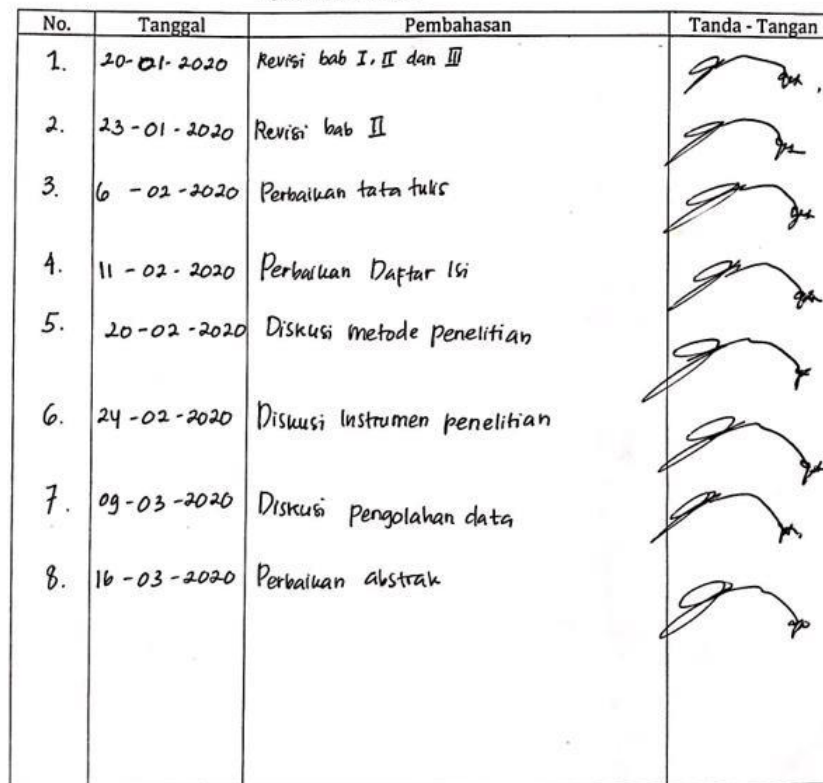 No. Tanggal Pembahasan Tanda - Tangan
1. 20-01-2020 Revisi bab I, II dan III
2. 23-01-2020 Revisi bab II
3. 6 -02-2020 Perbaikan tata tulis
4. 11-02-2020 Perbaikan Daftar Isi
5. 20-02-2020 Diskusi metode penelitian
6. 24-02-2020 Diskusi Instrumen penelitian
7. 09-03-2020 Diskusi pengolahan data
8. 16-03-2020 Perbaikan abstrak